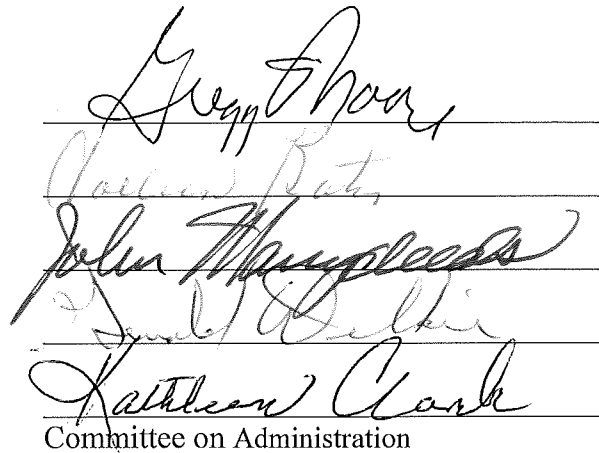 Gregg Moore
Colleen Bates
John Manydeeds
Gerald Wilkie
Kathleen Clark
Committee on Administration